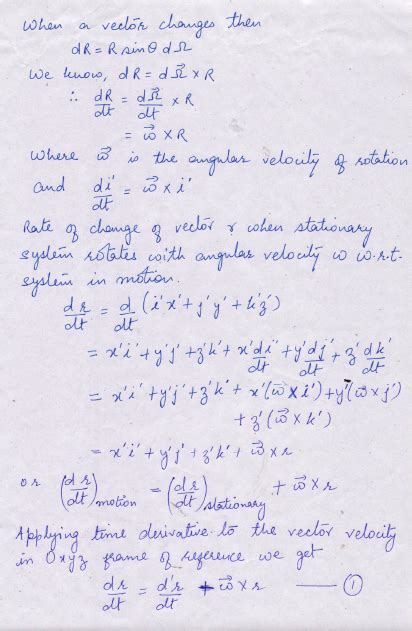 When a vector changes then
dR = R sinθ dΩ
We know, dR = d\vec{Ω} × R
∴ dR/dt = d\vec{Ω}/dt × R
= \vec{ω} × R
Where \vec{ω} is the angular velocity of rotation
and di'/dt = \vec{ω} × i'
Rate of change of vector r when stationary
system rotates with angular velocity ω w.r.t.
system in motion.
dr/dt = d/dt (i'x' + j'y' + k'z')
= x'i' + y'j' + z'k' + x'di'/dt + y'dj'/dt + z'dk'/dt
= x'i' + y'j' + z'k' + x'(\vec{ω} × i') + y'(\vec{ω} × j')
+ z'(\vec{ω} × k')
= x'i' + y'j' + z'k' + \vec{ω} × r
or (dr/dt)motion = (dr/dt)stationary + \vec{ω} × r
Applying time derivative to the vector velocity
in Oxyz frame of reference we get
dr/dt = d'r/dt + \vec{ω} × r —— ①